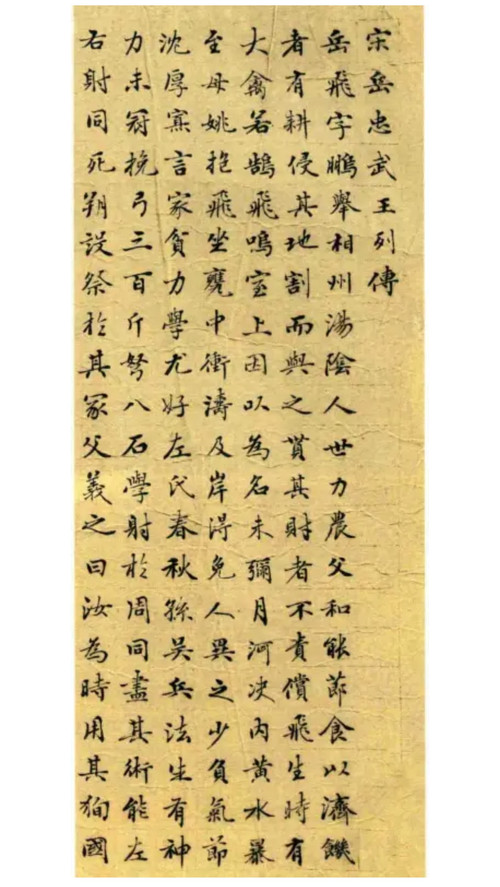 宋岳忠武王列傳
岳飛字鵬舉相州湯陰人世力農父和能節食以濟饑
者有耕侵其地割而與之貰其財者不責償飛生時有
大禽若鵠飛鳴室上因以為名未彌月河決內黃水暴
至母姚抱飛坐甕中衝濤及岸得免人異之少負氣節
沈厚寡言家貧力學尤好左氏春秋孫吳兵法生有神
力未冠挽弓三百斤弩八石學射於周同盡其術能左
右射同死朔設祭於其冢父義之曰汝為時用其徇國